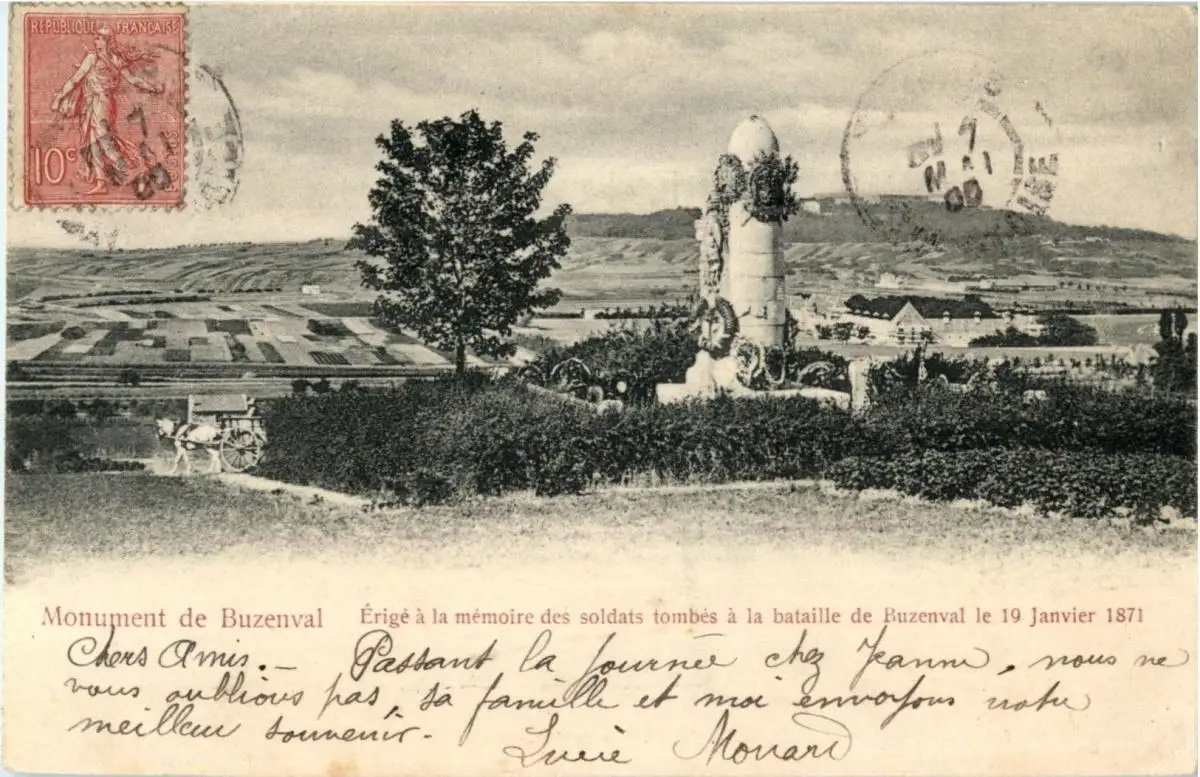 RÉPUBLIQUE FRANÇAISE
10c
Monument de Buzenval Érigé à la mémoire des soldats tombés à la bataille de Buzenval le 19 Janvier 1871
Chers Amis. — Passant la journée chez Jeanne, nous ne
vous oublions pas, sa famille et moi envoyons notre
meilleur souvenir.
Lucie Monard